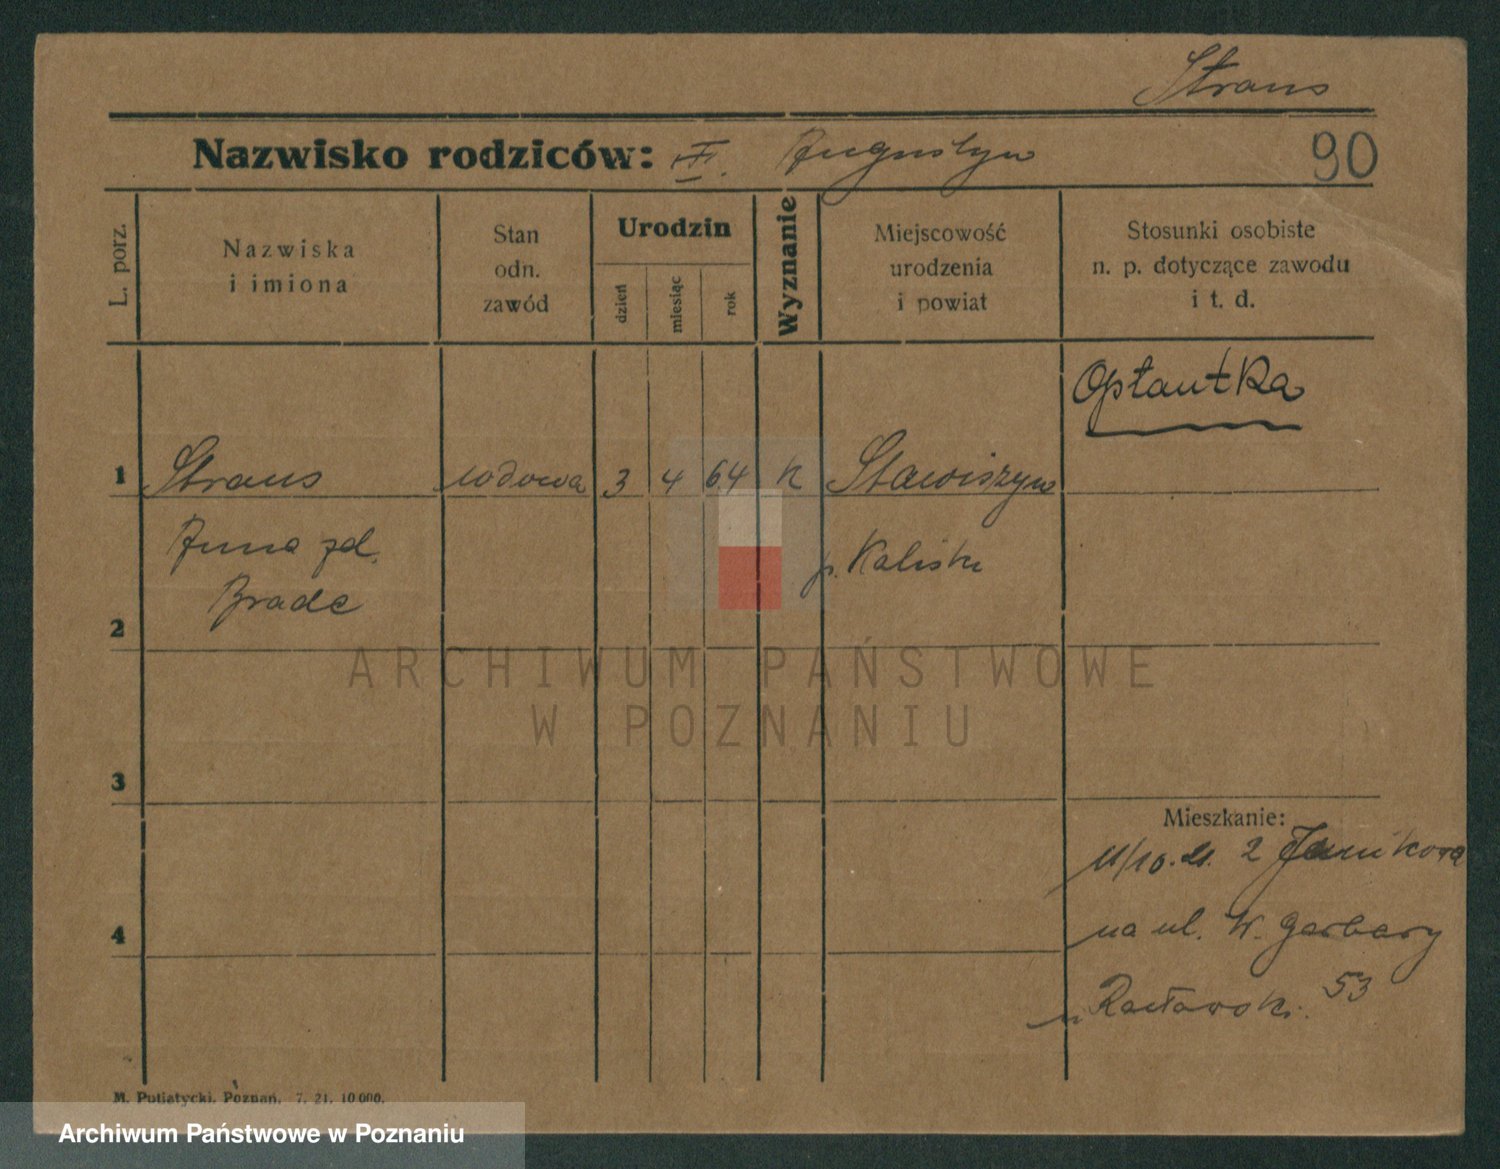 Straus
Nazwisko rodziców: III. Augustyn
90
L. porz.
Nazwiska
i imiona
Stan
odn.
zawód
Urodzin
dzień
miesiąc
rok
Wyznanie
Miejscowość
urodzenia
i powiat
Stosunki osobiste
n. p. dotyczące zawodu
i t. d.
Optantka
1 Straus wdowa 3 4 64 k Stawiszyn
Anna zd. p. Kalisk
2 Brade
ARCHIWUM PAŃSTWOWE
W POZNANIU
3
Mieszkanie:
11/10.21. z Janikowa
4 na ul. W. Garbary
53
M. Putiatycki, Poznań. 7. 21. 10 000.
Archiwum Państwowe w Poznaniu